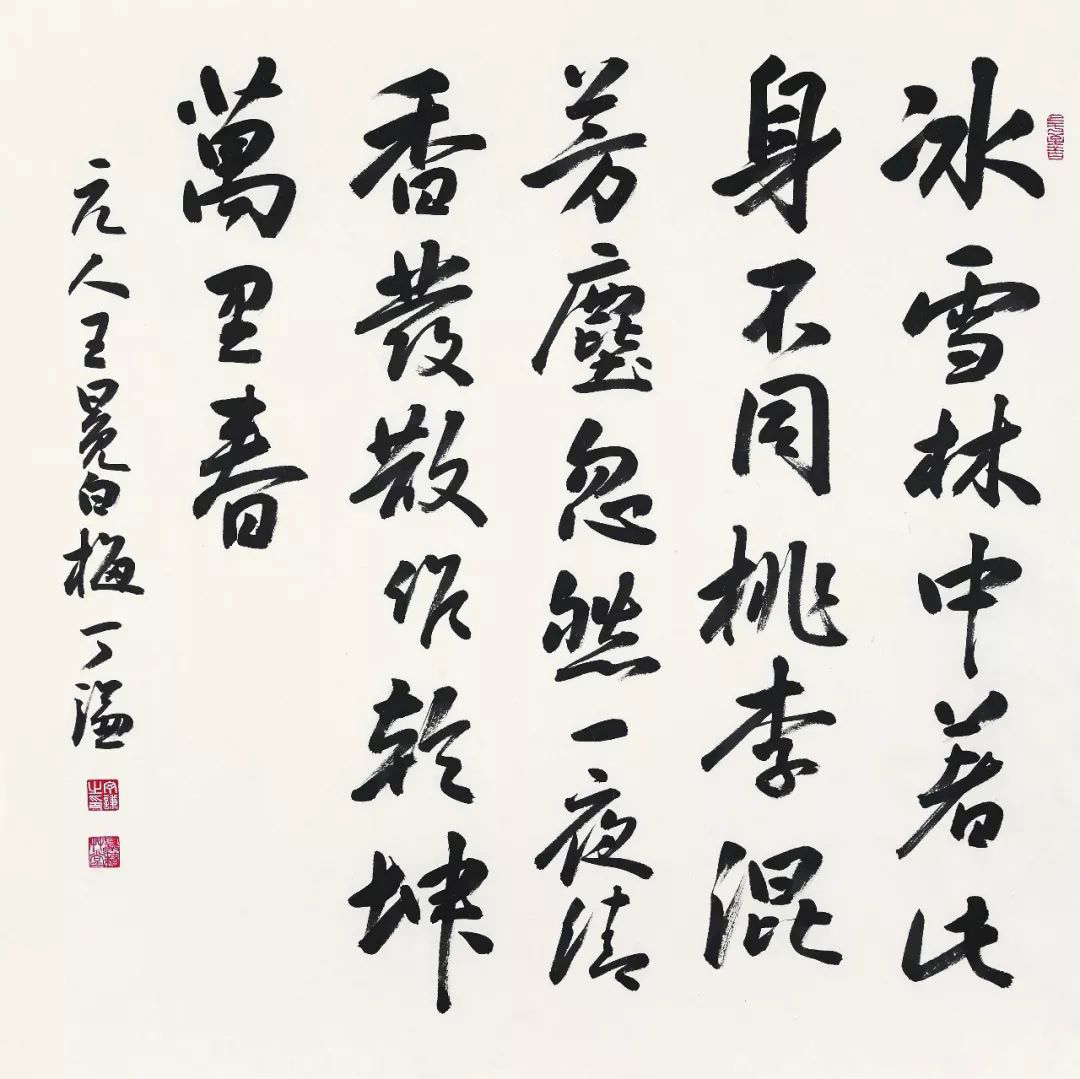 冰雪林中著此
身不同桃李混
芳塵忽然一夜清
香發散作乾坤
萬里春
元人王冕白梅丁謙